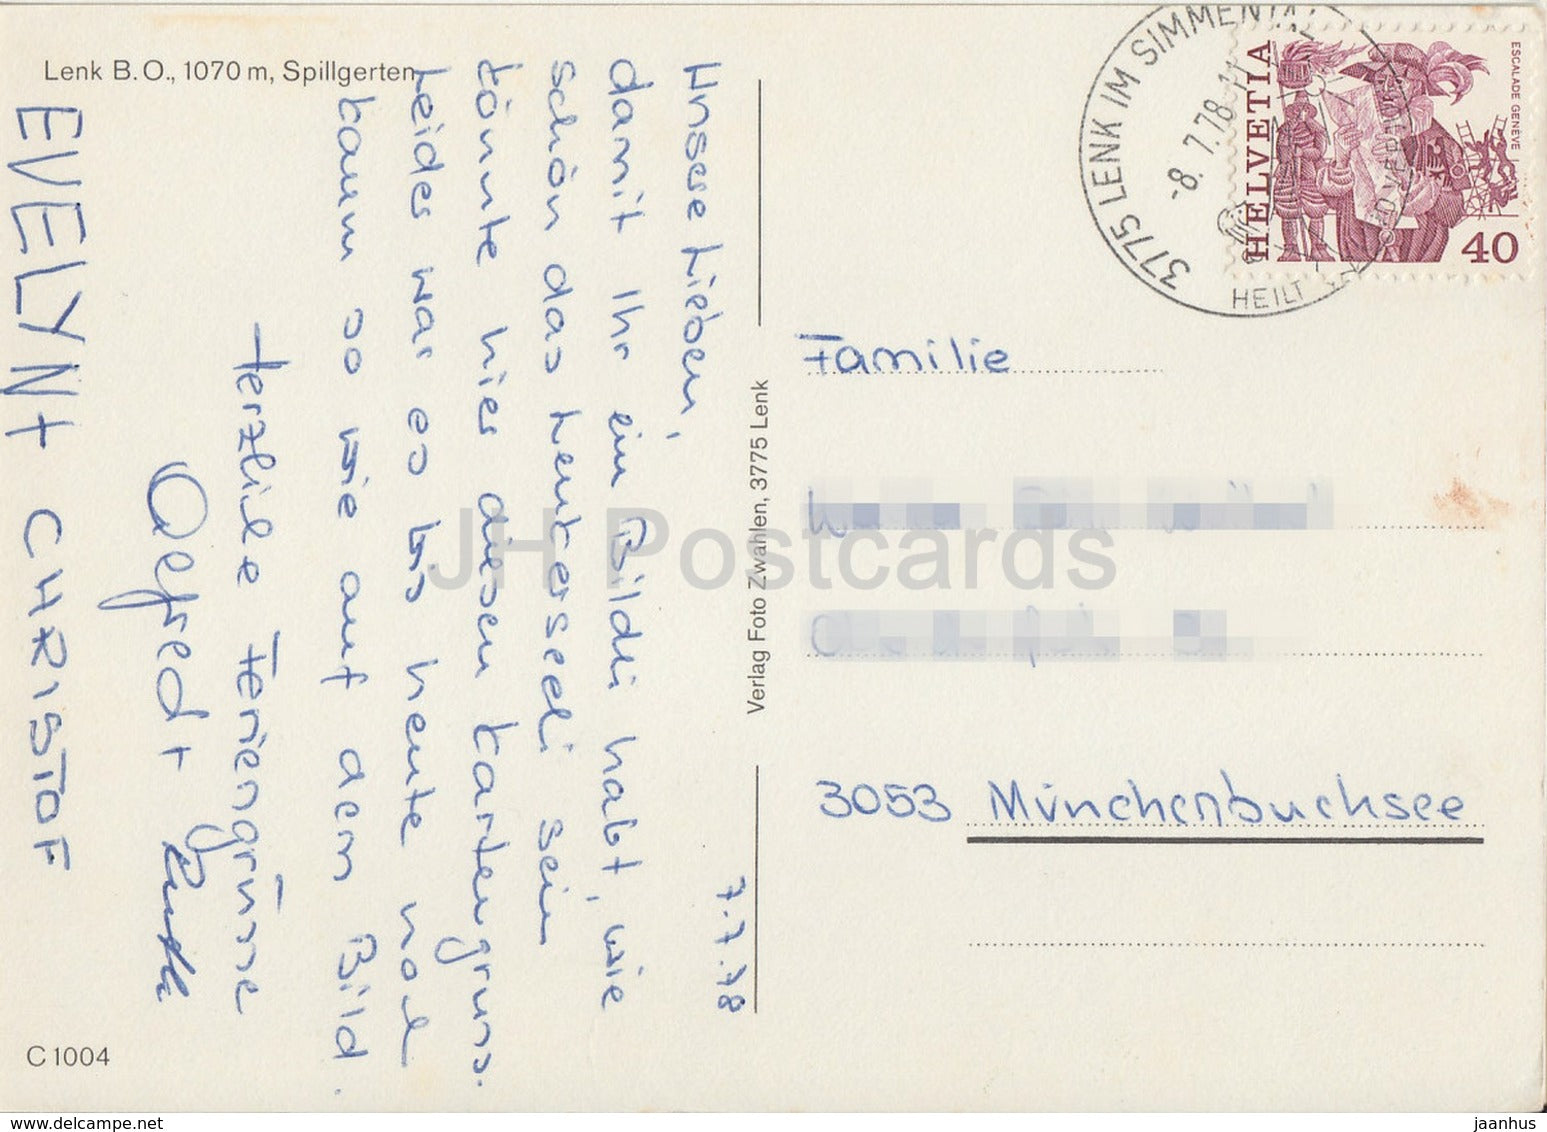 Lenk B.O., 1070 m, Spillgerten
7.7.78
Unsere Lieben,
damit Ihr ein Bildli habt, wie
schön das Lenkerseeli sein
könnte hier diesen Kartengruss.
Leider war es bis heute noch
kaum so wie auf dem Bild.
Herzliche Feriengrüsse
Alfred + Ruth
EVELYN + CHRISTOF
C 1004
Verlag Foto Zwahlen, 3775 Lenk
3775 LENK IM SIMMENTAL
-8.7.78
HEILT
HELVETIA
ESCALADE GENÈVE
40
Familie
3053 Münchenbuchsee
JH Postcards
www.delcampe.net
jaanhus